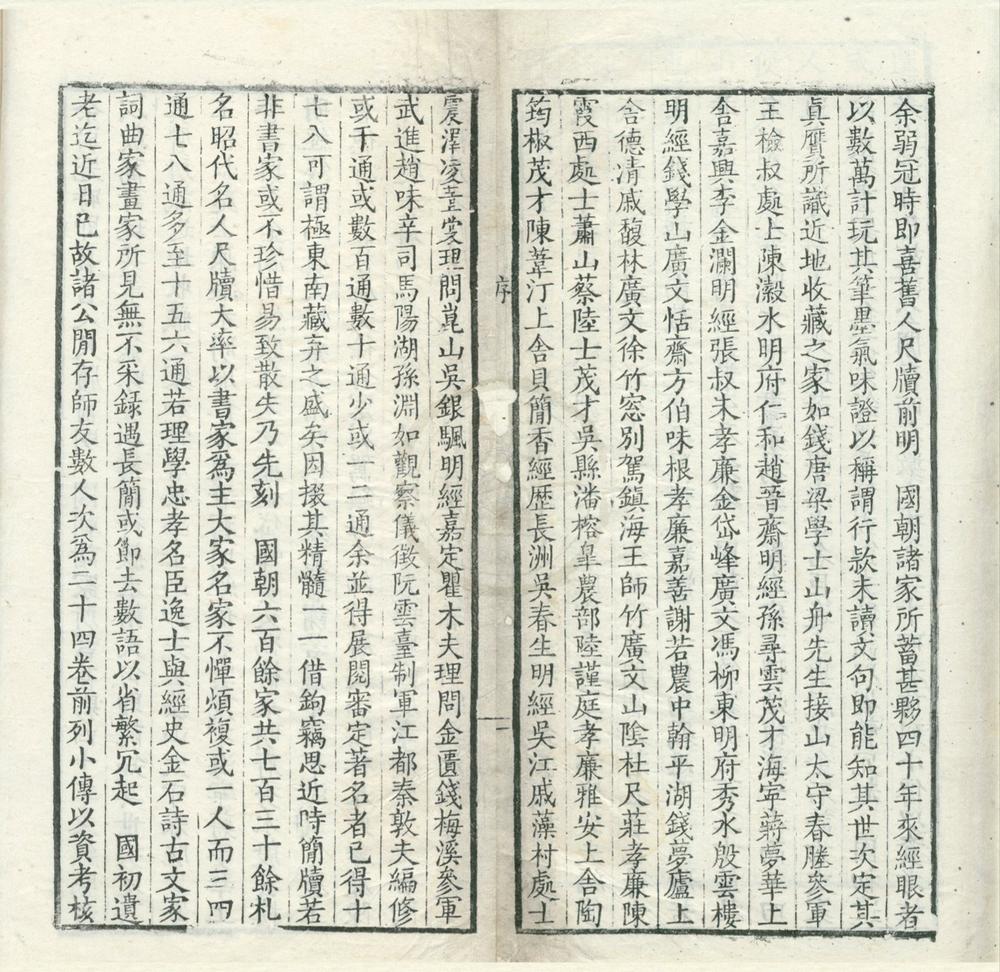 余弱冠時即喜舊人尺牘前明　國朝諸家所蓄甚夥四十年來經眼者
以數萬計玩其筆墨氣味證以稱謂行款未讀文句即能知其世次定其
真贗所識近地收藏之家如錢唐梁學士山舟先生接山太守春塍參軍
王檢叔處士陳瀔水明府仁和趙晉齋明經孫尋雲茂才海寧蔣夢華上
舍嘉興李金瀾明經張叔未孝廉金岱峰廣文馮柳東明府秀水殷雲樓
明經錢學山廣文恬齋方伯味根孝廉嘉善謝若農中翰平湖錢夢廬上
舍德清戚馥林廣文徐竹窓別駕鎮海王師竹廣文山陰杜尺莊孝廉陳
霞西處士蕭山蔡陸士茂才吳縣潘榕皋農部陸謹庭孝廉雅安上舍陶
筠椒茂才陳葦汀上舍貝簡香經歷長洲吳春生明經吳江戚藻村處士
序
一
震澤凌臺理問崑山吳銀颿明經嘉定瞿木夫理問金匱錢梅溪參軍
武進趙味辛司馬陽湖孫淵如觀察儀徵阮雲臺制軍江都秦敦夫編修
或千通或數百通數十通少或一二通余並得展閱審定著名者已得十
七八可謂極東南藏弆之盛矣因掇其精髓一一借鉤竊思近時簡牘若
非書家或不珍惜易致散失乃先刻　國朝六百餘家共七百三十餘札
名昭代名人尺牘大率以書家為主大家名家不憚煩複或一人而三四
通七八通多至十五六通若理學忠孝名臣逸士與經史金石詩古文家
詞曲家畫家所見無不采錄遇長簡或節去數語以省繁冗起　國初遺
老迄近日已故諸公閒存師友數人次為二十四卷前列小傳以資考核